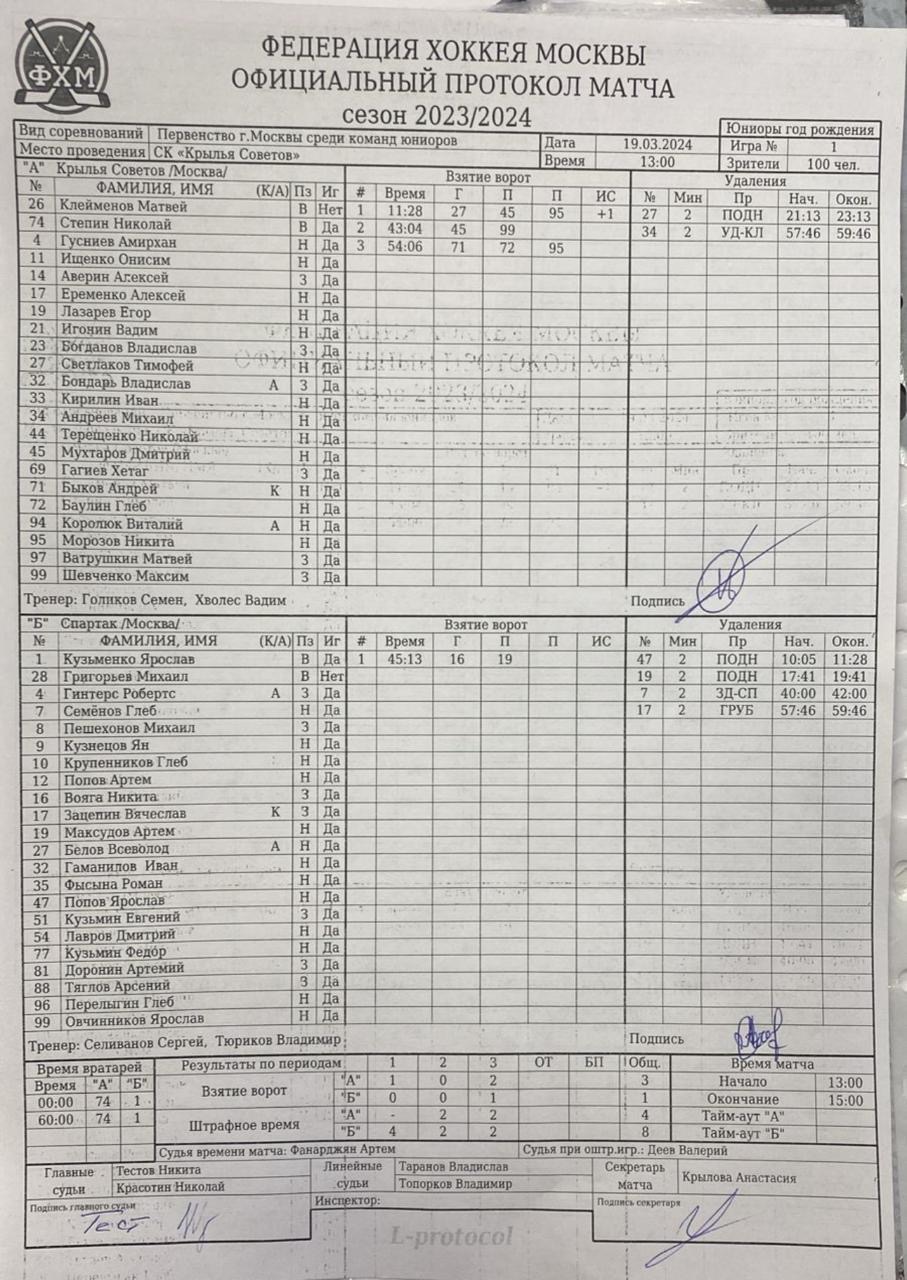 ФХМ
ФЕДЕРАЦИЯ ХОККЕЯ МОСКВЫ
ОФИЦИАЛЬНЫЙ ПРОТОКОЛ МАТЧА
сезон 2023/2024
Юниоры год рождения
Вид соревнований Первенство г.Москвы среди команд юниоров Дата 19.03.2024 Игра № 1
Место проведения СК «Крылья Советов» Время 13:00 Зрители 100 чел.
"А" Крылья Советов /Москва/ Взятие ворот Удаления
№ ФАМИЛИЯ, ИМЯ (К/А) Пз Иг # Время Г П П ИС № Мин Пр Нач. Окон.
26 Клейменов Матвей В Нет 1 11:28 27 45 95 +1 27 2 ПОДН 21:13 23:13
74 Степин Николай В Да 2 43:04 45 99 34 2 УД-КЛ 57:46 59:46
4 Гусниев Амирхан Н Да 3 54:06 71 72 95
11 Ищенко Онисим Н Да
14 Аверин Алексей З Да
17 Еременко Алексей Н Да
19 Лазарев Егор Н Да
21 Игонин Вадим Н Да
23 Богданов Владислав З Да
27 Светлаков Тимофей Н Да
32 Бондарь Владислав А З Да
33 Кирилин Иван Н Да
34 Андреев Михаил Н Да
44 Терещенко Николай Н Да
45 Мухтаров Дмитрий Н Да
69 Гагиев Хетаг З Да
71 Быков Андрей К Н Да
72 Баулин Глеб Н Да
94 Королюк Виталий А Н Да
95 Морозов Никита Н Да
97 Ватрушкин Матвей З Да
99 Шевченко Максим З Да
Тренер: Голиков Семен, Хволес Вадим Подпись
"Б" Спартак /Москва/ Взятие ворот Удаления
№ ФАМИЛИЯ, ИМЯ (К/А) Пз Иг # Время Г П П ИС № Мин Пр Нач. Окон.
1 Кузьменко Ярослав В Да 1 45:13 16 19 47 2 ПОДН 10:05 11:28
28 Григорьев Михаил В Нет 19 2 ПОДН 17:41 19:41
4 Гинтерс Робертс А З Да 7 2 ЗД-СП 40:00 42:00
7 Семёнов Глеб Н Да 17 2 ГРУБ 57:46 59:46
8 Пешехонов Михаил З Да
9 Кузнецов Ян Н Да
10 Крупенников Глеб Н Да
12 Попов Артем Н Да
16 Вояга Никита З Да
17 Зацепин Вячеслав К З Да
19 Максудов Артем Н Да
27 Белов Всеволод А Н Да
32 Гаманилов Иван Н Да
35 Фысына Роман Н Да
47 Попов Ярослав Н Да
51 Кузьмин Евгений З Да
54 Лавров Дмитрий Н Да
77 Кузьмин Федор Н Да
81 Доронин Артемий З Да
88 Тяглов Арсений З Да
96 Перелыгин Глеб Н Да
99 Овчинников Ярослав Н Да
Тренер: Селиванов Сергей, Тюриков Владимир Подпись
Время вратарей Результаты по периодам 1 2 3 ОТ БП Общ. Время матча
Время "А" "Б" Взятие ворот "А" 1 0 2 3 Начало 13:00
00:00 74 1 "Б" 0 0 1 1 Окончание 15:00
60:00 74 1 Штрафное время "А" - 2 2 4 Тайм-аут "А"
"Б" 4 2 2 8 Тайм-аут "Б"
Судья времени матча: Фанарджян Артем Судья при оштр.игр.: Деев Валерий
Главные судьи Тестов Никита Линейные судьи Таранов Владислав Секретарь матча Крылова Анастасия
Красотин Николай Топорков Владимир
Подпись главного судьи Инспектор: Подпись секретаря
Тест
L-protocol